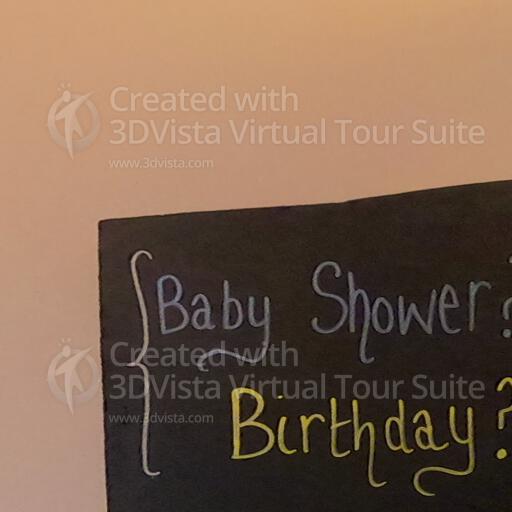 Created with
3DVista Virtual Tour Suite
www.3dvista.com
Baby Shower?
Created with
3DVista Virtual Tour Suite
www.3dvista.com
Birthday?